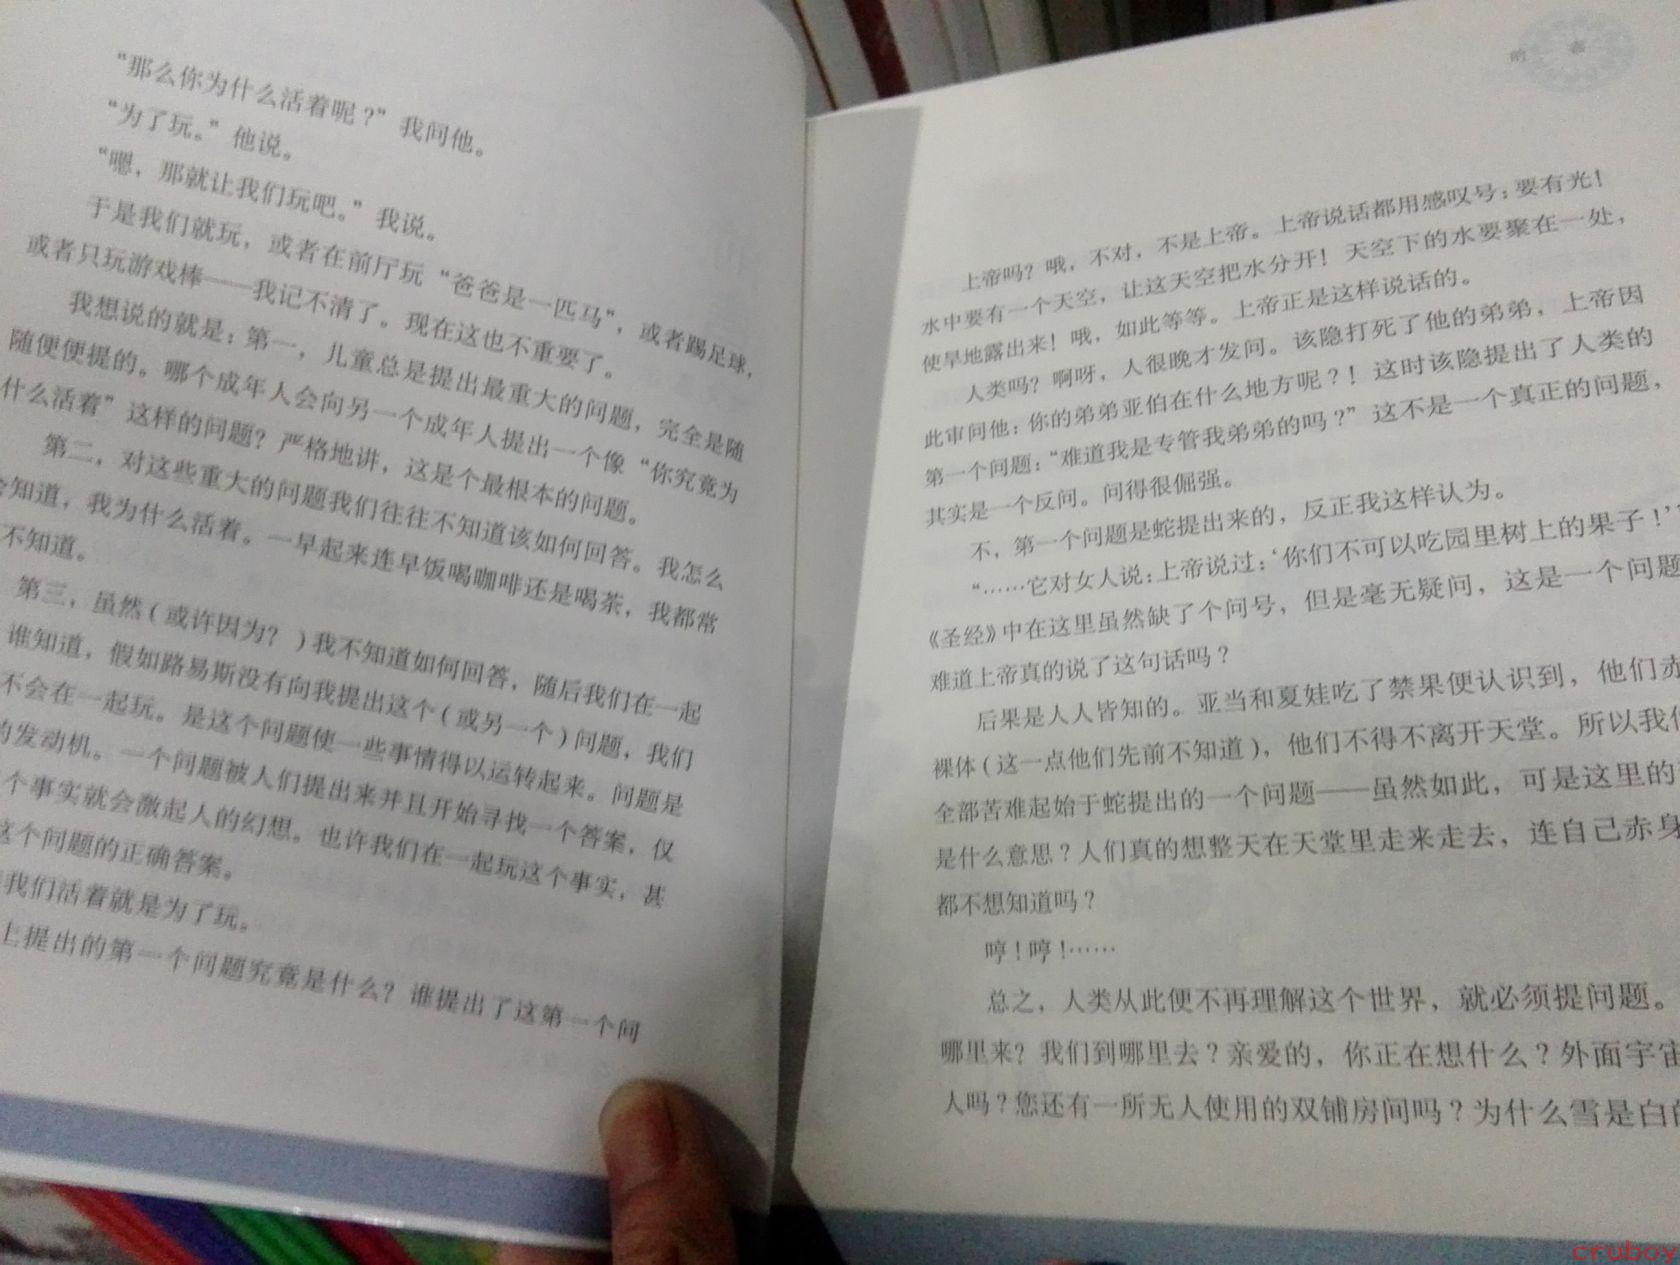 “那么你为什么活着呢？”我问他。
“为了玩。”他说。
“嗯，那就让我们玩吧。”我说。
于是我们就玩，或者在前厅玩“爸爸是一匹马”，或者踢足球，
或者只玩游戏棒——我记不清了。现在这也不重要了。
我想说的就是：第一，儿童总是提出最重大的问题，完全是随
随便便提的。哪个成年人会向另一个成年人提出一个像“你究竟为
什么活着”这样的问题？严格地讲，这是个最根本的问题。
第二，对这些重大的问题我们往往不知道该如何回答。我怎么
会知道，我为什么活着。一早起来连早饭喝咖啡还是喝茶，我都常
不知道。
第三，虽然(或许因为？)我不知道如何回答，随后我们在一起
谁知道，假如路易斯没有向我提出这个(或另一个)问题，我们
不会在一起玩。是这个问题使一些事情得以运转起来。问题是
的发动机。一个问题被人们提出来并且开始寻找一个答案，仅
个事实就会激起人的幻想。也许我们在一起玩这个事实，甚
这个问题的正确答案。
我们活着就是为了玩。
上提出的第一个问题究竟是什么？谁提出了这第一个问
上帝吗？哦，不对，不是上帝。上帝说话都用感叹号：要有光！
水中要有一个天空，让这天空把水分开！天空下的水要聚在一处，
使旱地露出来！哦，如此等等。上帝正是这样说话的。
人类吗？啊呀，人很晚才发问。该隐打死了他的弟弟，上帝因
此审问他：你的弟弟亚伯在什么地方呢？！这时该隐提出了人类的
第一个问题：“难道我是专管我弟弟的吗？”这不是一个真正的问题，
其实是一个反问。问得很倔强。
不，第一个问题是蛇提出来的，反正我这样认为。
“……它对女人说：上帝说过：‘你们不可以吃园里树上的果子！’”
《圣经》中在这里虽然缺了个问号，但是毫无疑问，这是一个问题
难道上帝真的说了这句话吗？
后果是人人皆知的。亚当和夏娃吃了禁果便认识到，他们赤
裸体(这一点他们先前不知道)，他们不得不离开天堂。所以我们
全部苦难起始于蛇提出的一个问题——虽然如此，可是这里的
是什么意思？人们真的想整天在天堂里走来走去，连自己赤身
都不想知道吗？
哼！哼！……
总之，人类从此便不再理解这个世界，就必须提问题。
哪里来？我们到哪里去？亲爱的，你正在想什么？外面宇宙
人吗？您还有一所无人使用的双铺房间吗？为什么雪是白的
crubov